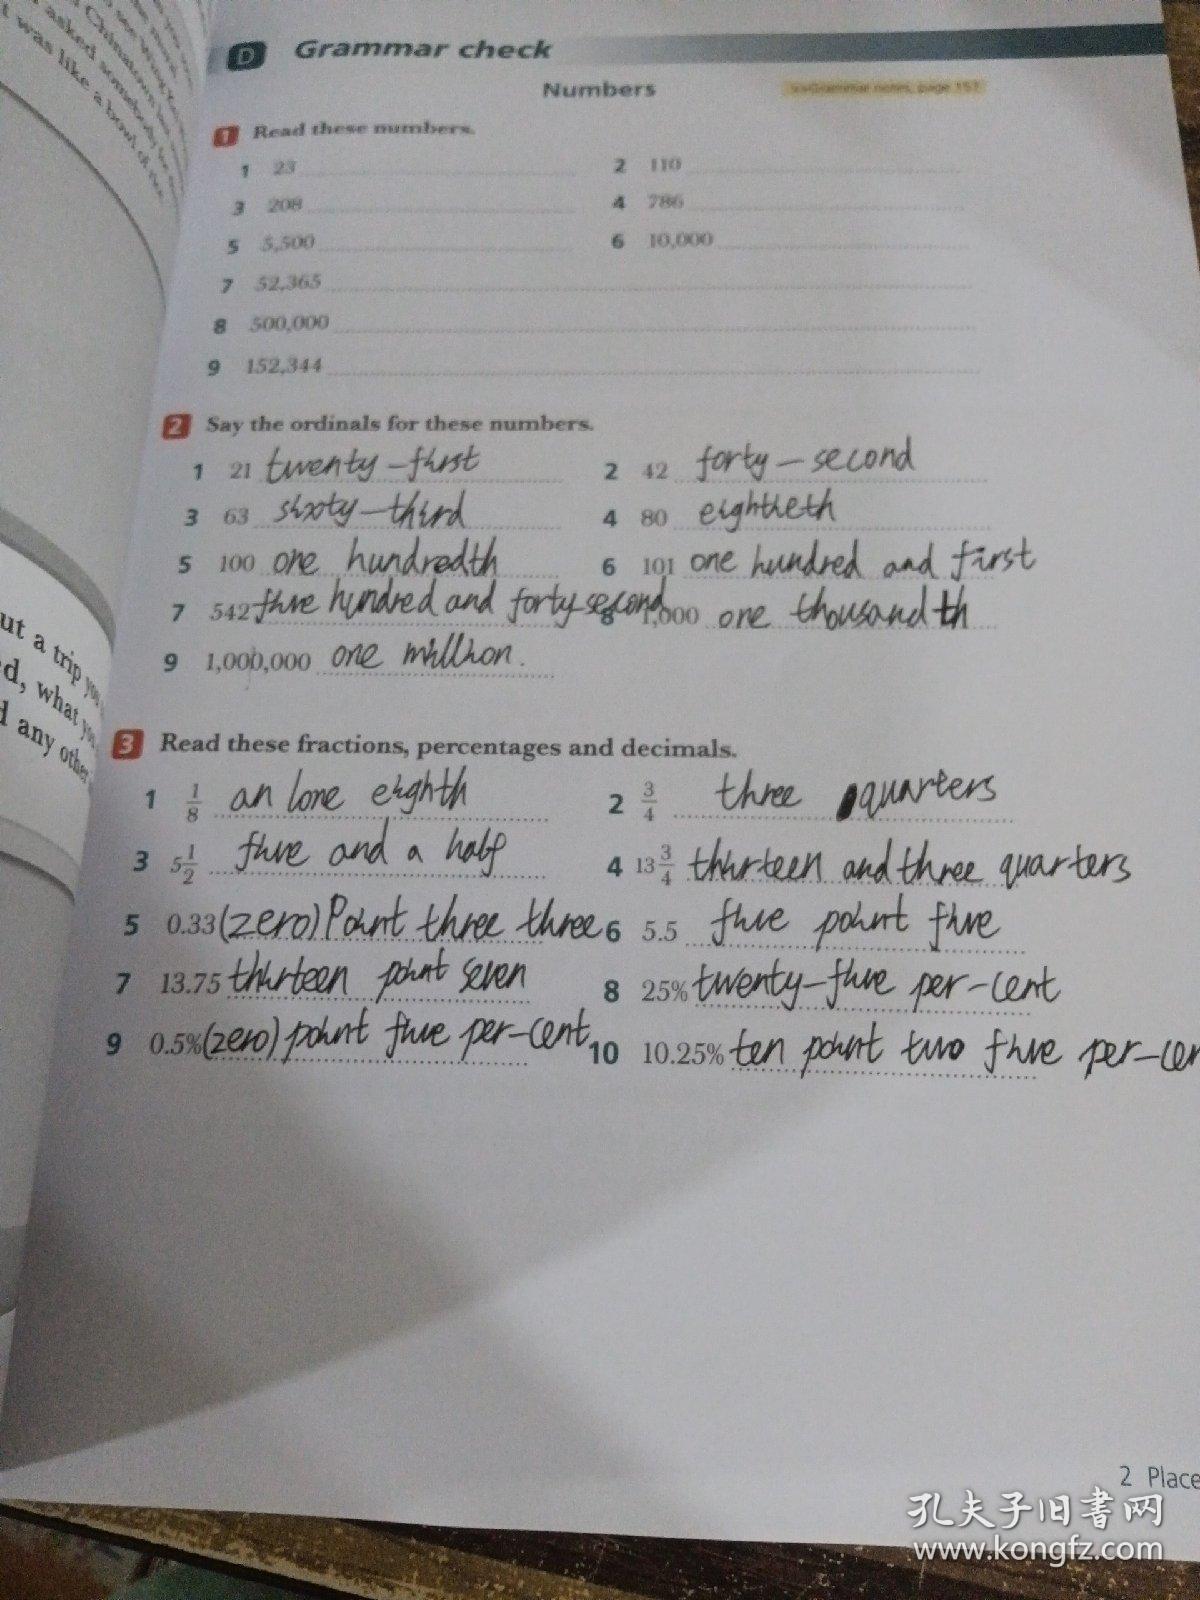 D Grammar check
Numbers
>>Grammar notes, page 151
1 Read these numbers.
1 23 2 110
3 208 4 786
5 5,500 6 10,000
7 52,365
8 500,000
9 152,344
2 Say the ordinals for these numbers.
1 21 twenty-first 2 42 forty-second
3 63 sixty-third 4 80 eightieth
5 100 one hundredth 6 101 one hundred and first
7 542 five hundred and forty-second 8 1,000 one thousandth
9 1,000,000 one million.
3 Read these fractions, percentages and decimals.
1 1/8 an/one eighth 2 3/4 three quarters
3 5 1/2 five and a half 4 13 3/4 thirteen and three quarters
5 0.33 (zero) Point three three 6 5.5 five point five
7 13.75 thirteen point seven 8 25% twenty-five per-cent
9 0.5% (zero) point five per-cent 10 10.25% ten point two five per-cen
2 Place
ut a trip you
ed, what you
d any other
asked somebody
t was like a bowl of rice
Chinatown
孔夫子旧书网
www.kongfz.com